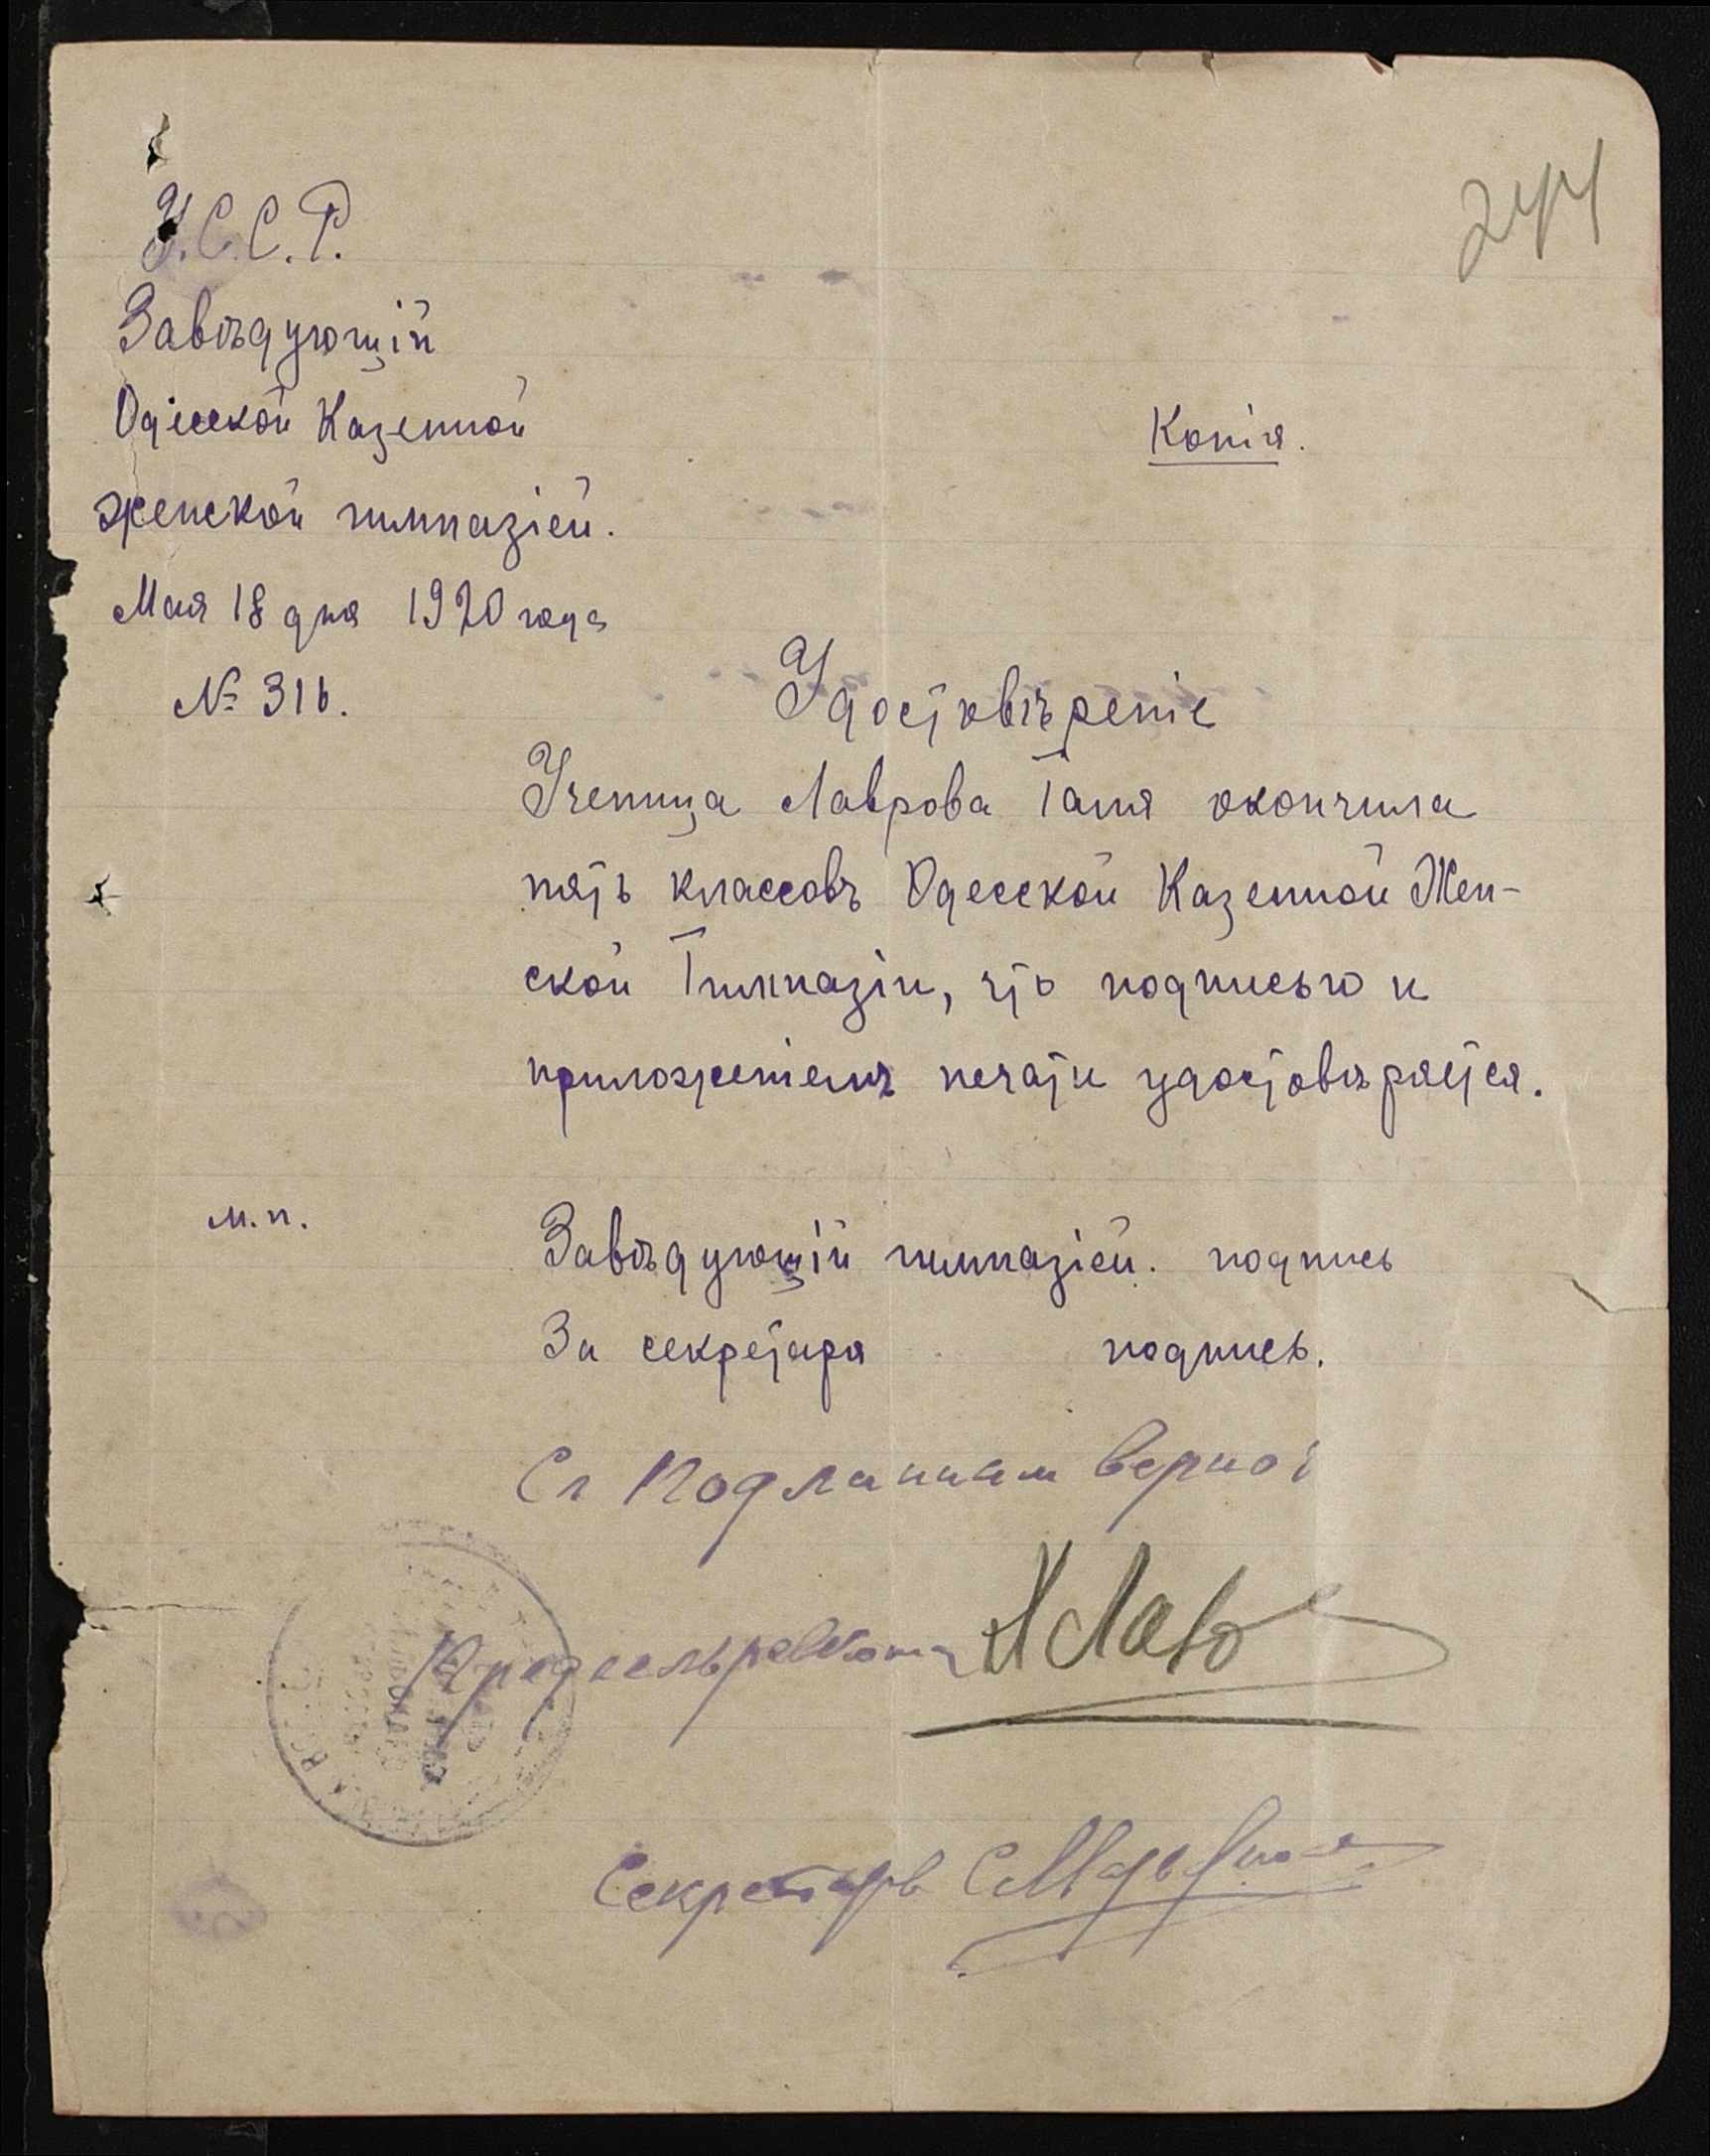 244
У.С.С.Р.
Завѣдующій
Одесской Казенной
женской гимназіей.
Мая 18 дня 1920 года
№ 316.
Копія.
Удостовѣреніе
Ученица Лаврова Таня окончила
пять классовъ Одесской Казенной Жен-
ской Гимназіи, что подписью и
приложеніемъ печати удостовѣряется.
м.п.
Завѣдующій гимназіей. подпись
За секретаря подпись.
Ст подланным верно:
Предсельревкома
Секретарь